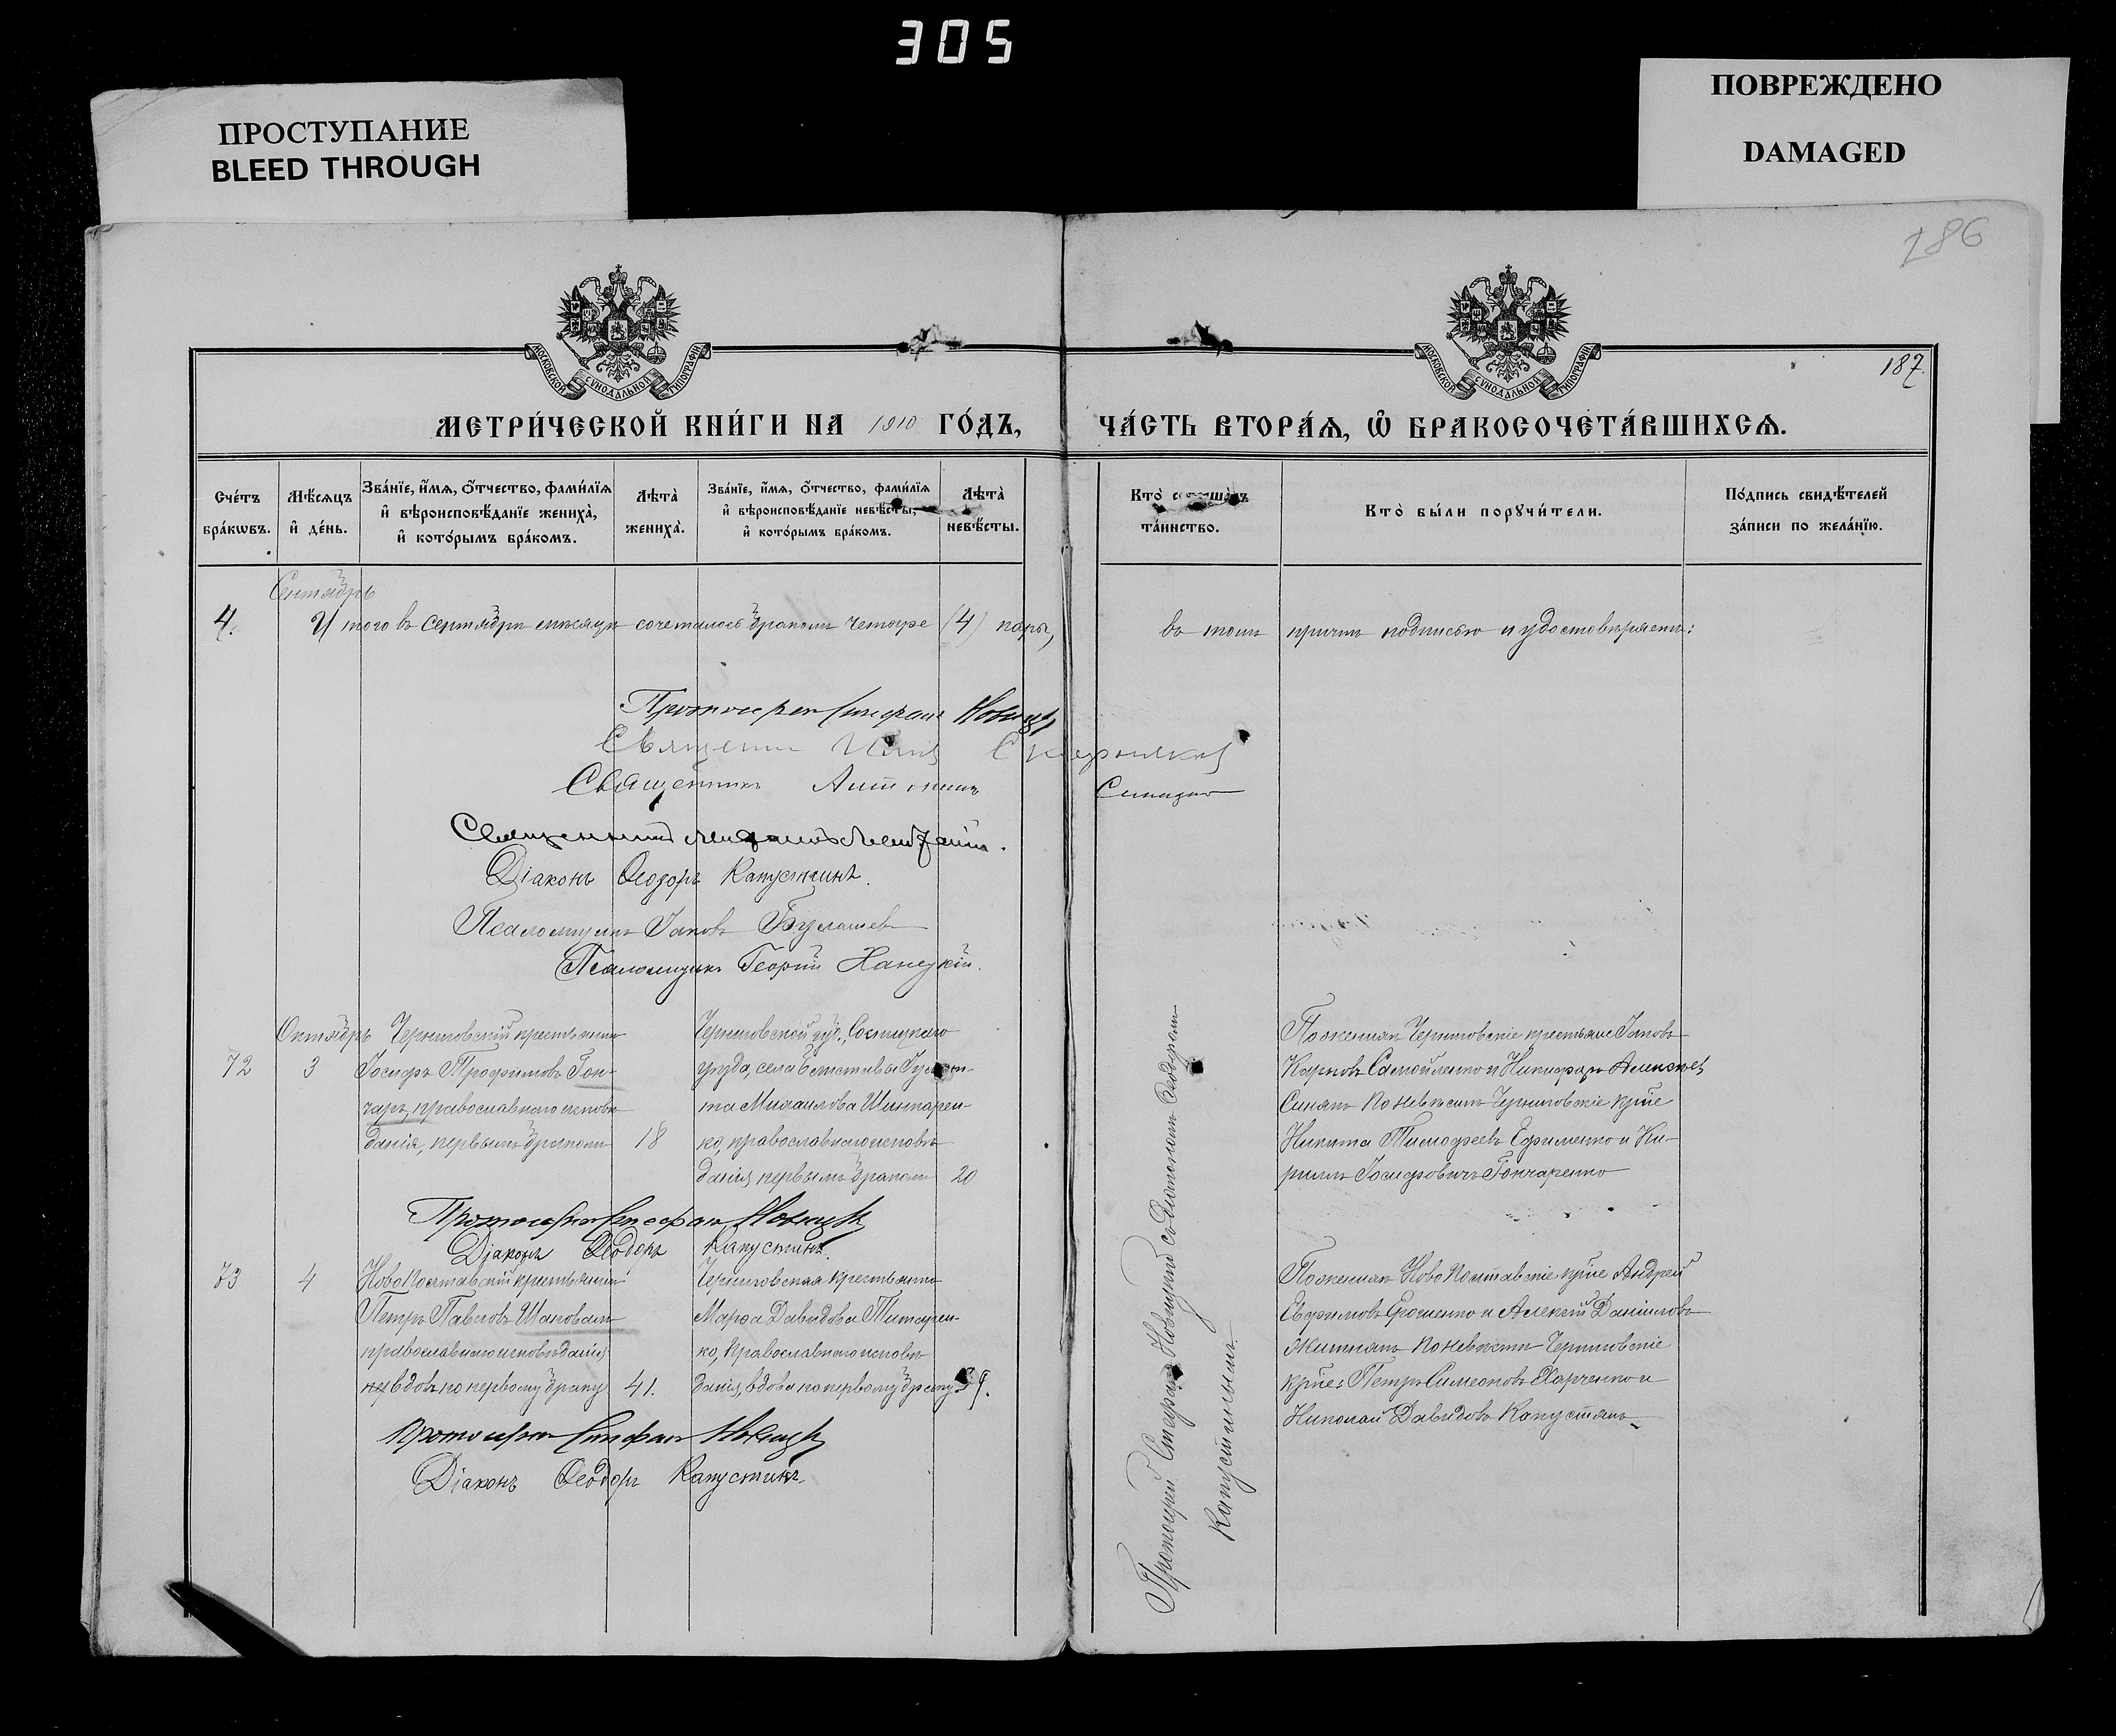 305
ПРОСТУПАНИЕ
BLEED THROUGH
ПОВРЕЖДЕНО
DAMAGED
186
187.
МОСКОВСКОЙ СУНОДАЛЬНОЙ ТИПОГРАФІИ
МОСКОВСКОЙ СУНОДАЛЬНОЙ ТИПОГРАФІИ
МЕТРИ́ЧЕСКОЙ КНИ́ГИ НА 1910 ГО́ДЪ,
ЧА́СТЬ ВТОРА́Ѧ, Ѽ БРАКОСОЧЕТА́ВШИХСѦ.
Сче́тъ бра́кѡвъ.
Мѣ́сѧцъ и҆ де́нь.
Зва́нїе, и҆́мѧ, ѻ҆́тчество, фами́лїѧ и҆ вѣроисповѣ́данїе жениха̀, и҆ кото́рымъ бра́комъ.
Лѣ́та̀ жениха̀.
Зва́нїе, и҆́мѧ, ѻ҆́тчество, фами́лїѧ и҆ вѣроисповѣ́данїе невѣ́сты, и҆ кото́рымъ бра́комъ.
Лѣ́та̀ невѣ́сты.
Кто̀ соверша́лъ та́инство.
Кто̀ бы́ли порꙋчи́тели.
По́дпись свидѣ́телей за́писи по жела́нїю.
Сентябрь
4. Итого въ Сентябрѣ мѣсяцѣ сочеталось бракомъ четыре (4) пары,
въ томъ причтъ подписью и удостовѣряетъ:
Протоіерей Стефанъ Новицкій
Священникъ
Священникъ Антонинъ
Священникъ
Діаконъ Ѳеодоръ Капустинъ.
Псаломщикъ Іаковъ Булашев
Псаломщикъ Георгій Ханецкій.
Октябрь
72
3
Черниговскій крестьянинъ
Іосифъ Трофимовъ Гон-
чаръ, православнаго исповѣ-
данія, первымъ бракомъ
18
Черниговской губ., Сосницкаго
уѣзда, села
та Михаилова Шинкарен-
ко, православнаго исповѣ-
данія, первымъ бракомъ
20
Протоіерей Стефанъ Новицкій со Діакономъ Ѳеодоромъ
Капустинымъ.
По женихѣ Черниговскіе крестьяне Іаковъ
Карповъ Самойленко и Никифоръ Алексѣев
Синякъ По невѣстѣ Черниговскіе кр-не
Никита Тимофеевъ Ефименко и Ки-
риллъ Іосифовичъ Гончаренко
Протоіерей Стефанъ Новицкій
Діаконъ Ѳеодоръ Капустинъ.
73
4
НовоПолтавскій крестьянинъ
Петръ Павловъ Шаповалъ
православнаго исповѣданія
вдовъ по первому браку
41.
Черниговская крестьянка
Марѳа Давидова Титарен-
ко, Православнаго исповѣ-
данія, вдова по первому браку
39.
По женихѣ НовоПолтавскіе кр-не Андрей
Евфимовъ Ерошенко и Алексѣй Даніиловъ
Житникъ По невѣстѣ Черниговскіе
кр-не: Петръ Симеоновъ Харченко и
Николай Давидовъ Капустянъ.
Протоіерей Стефанъ Новицкій
Діаконъ Ѳеодоръ Капустинъ.